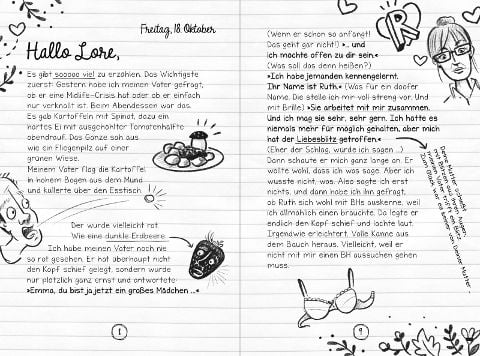 Freitag, 18. Oktober
Hallo Lore,
Es gibt soooo viel zu erzählen. Das Wichtigste
zuerst: Gestern habe ich meinen Vater gefragt,
ob er eine Midlife-Crisis hat oder ob er einfach
nur verknallt ist. Beim Abendessen war das.
Es gab Kartoffeln mit Spinat, dazu ein
hartes Ei mit ausgehöhlter Tomatenhälfte
obendrauf. Das Ganze sah aus
wie ein Fliegenpilz auf einer
grünen Wiese.
Meinem Vater flog die Kartoffel
in hohem Bogen aus dem Mund
und kullerte über den Esstisch.
Der wurde vielleicht rot
Wie eine dunkle Erdbeere.
Ich habe meinen Vater noch nie
so rot gesehen. Er hat überhaupt nicht
den Kopf schief gelegt, sondern wurde
nur plötzlich ganz ernst und antwortete:
»Emma, du bist ja jetzt ein großes Mädchen ...«
8
(Wenn er schon so anfängt!
Das geht gar nicht!) »... und
ich möchte offen zu dir sein.«
(Was soll denn das heißen?)
»Ich habe jemanden kennengelernt.
Ihr Name ist Ruth.« (Was für ein doofer
Name. Die stelle ich mir voll streng vor. Und
mit Brille.) »Sie arbeitet mit mir zusammen.
Und ich mag sie sehr, sehr gern. Ich hätte es
niemals mehr für möglich gehalten, aber mich
hat der Liebesblitz getroffen.«
(Eher der Schlag, würde ich sagen ...)
Dann schaute er mich ganz lange an. Er
wollte wohl, dass ich was sage. Aber ich
wusste nicht, was. Also sagte ich erst
nichts, und dann habe ich ihn gefragt,
ob Ruth sich wohl mit BHs auskenne, weil
ich allmählich einen brauche. Da legte er
endlich den Kopf schief und lachte laut.
Irgendwie erleichtert. Volle Kanne aus
dem Bauch heraus. Vielleicht, weil er
nicht mit mir einen BH aussuchen gehen
muss.
R
9